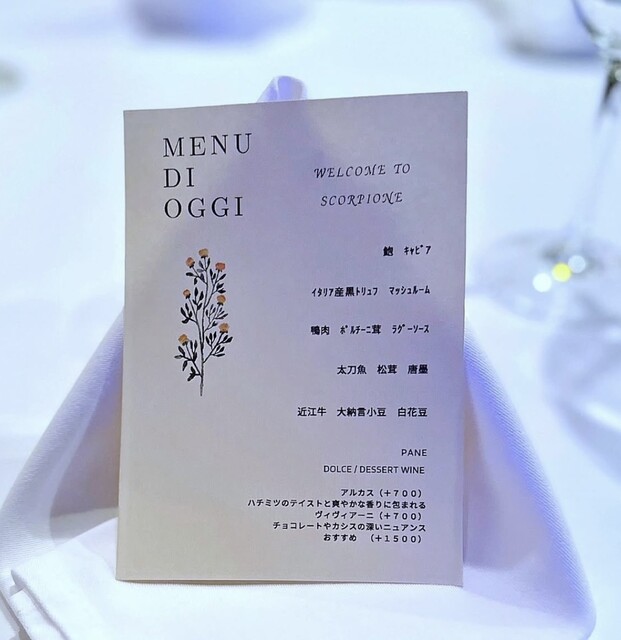 MENU
DI
OGGI
WELCOME TO
SCORPIONE
鮑　ｷｬﾋﾞｱ
ｲﾀﾘｱ産黒ﾄﾘｭﾌ　ﾏｯｼｭﾙｰﾑ
鴨肉　ﾎﾟﾙﾁｰﾆ茸　ﾗｸﾞｰｿｰｽ
太刀魚　松茸　唐墨
近江牛　大納言小豆　白花豆
PANE
DOLCE / DESSERT WINE
アルカス（＋７００）
ハチミツのテイストと爽やかな香りに包まれる
ヴィヴィアーニ（＋７００）
チョコレートやカシスの深いニュアンス
おすすめ　（＋１５００）